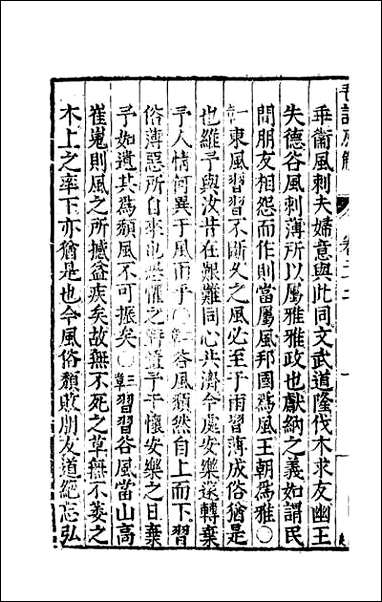 乖衞風刺夫婦意與此同文武道隆伐木求友幽王
失德谷風刺薄所以屬雅雅政也獻納之義如謂民
間朋友相怨而作則當屬風邦國爲風王朝爲雅〇
一章東風習習不斷久之風必至于雨習薄成俗猶是
也維予與汝昔在艱難同心共濟今處安樂遂轉棄
予人情何異于風雨乎〇二章谷風頹然自上而下習
俗薄惡所自來也恐懼之時近予于懷安樂之日棄
予如遺其爲頹風不可振矣〇三章習習谷風當山高
崔嵬則風之所撼益疾矣故無不死之草無不萎之
木上之率下亦猶是也今風俗頹敗朋友道絕忘弘
毛詩原解 卷二十二